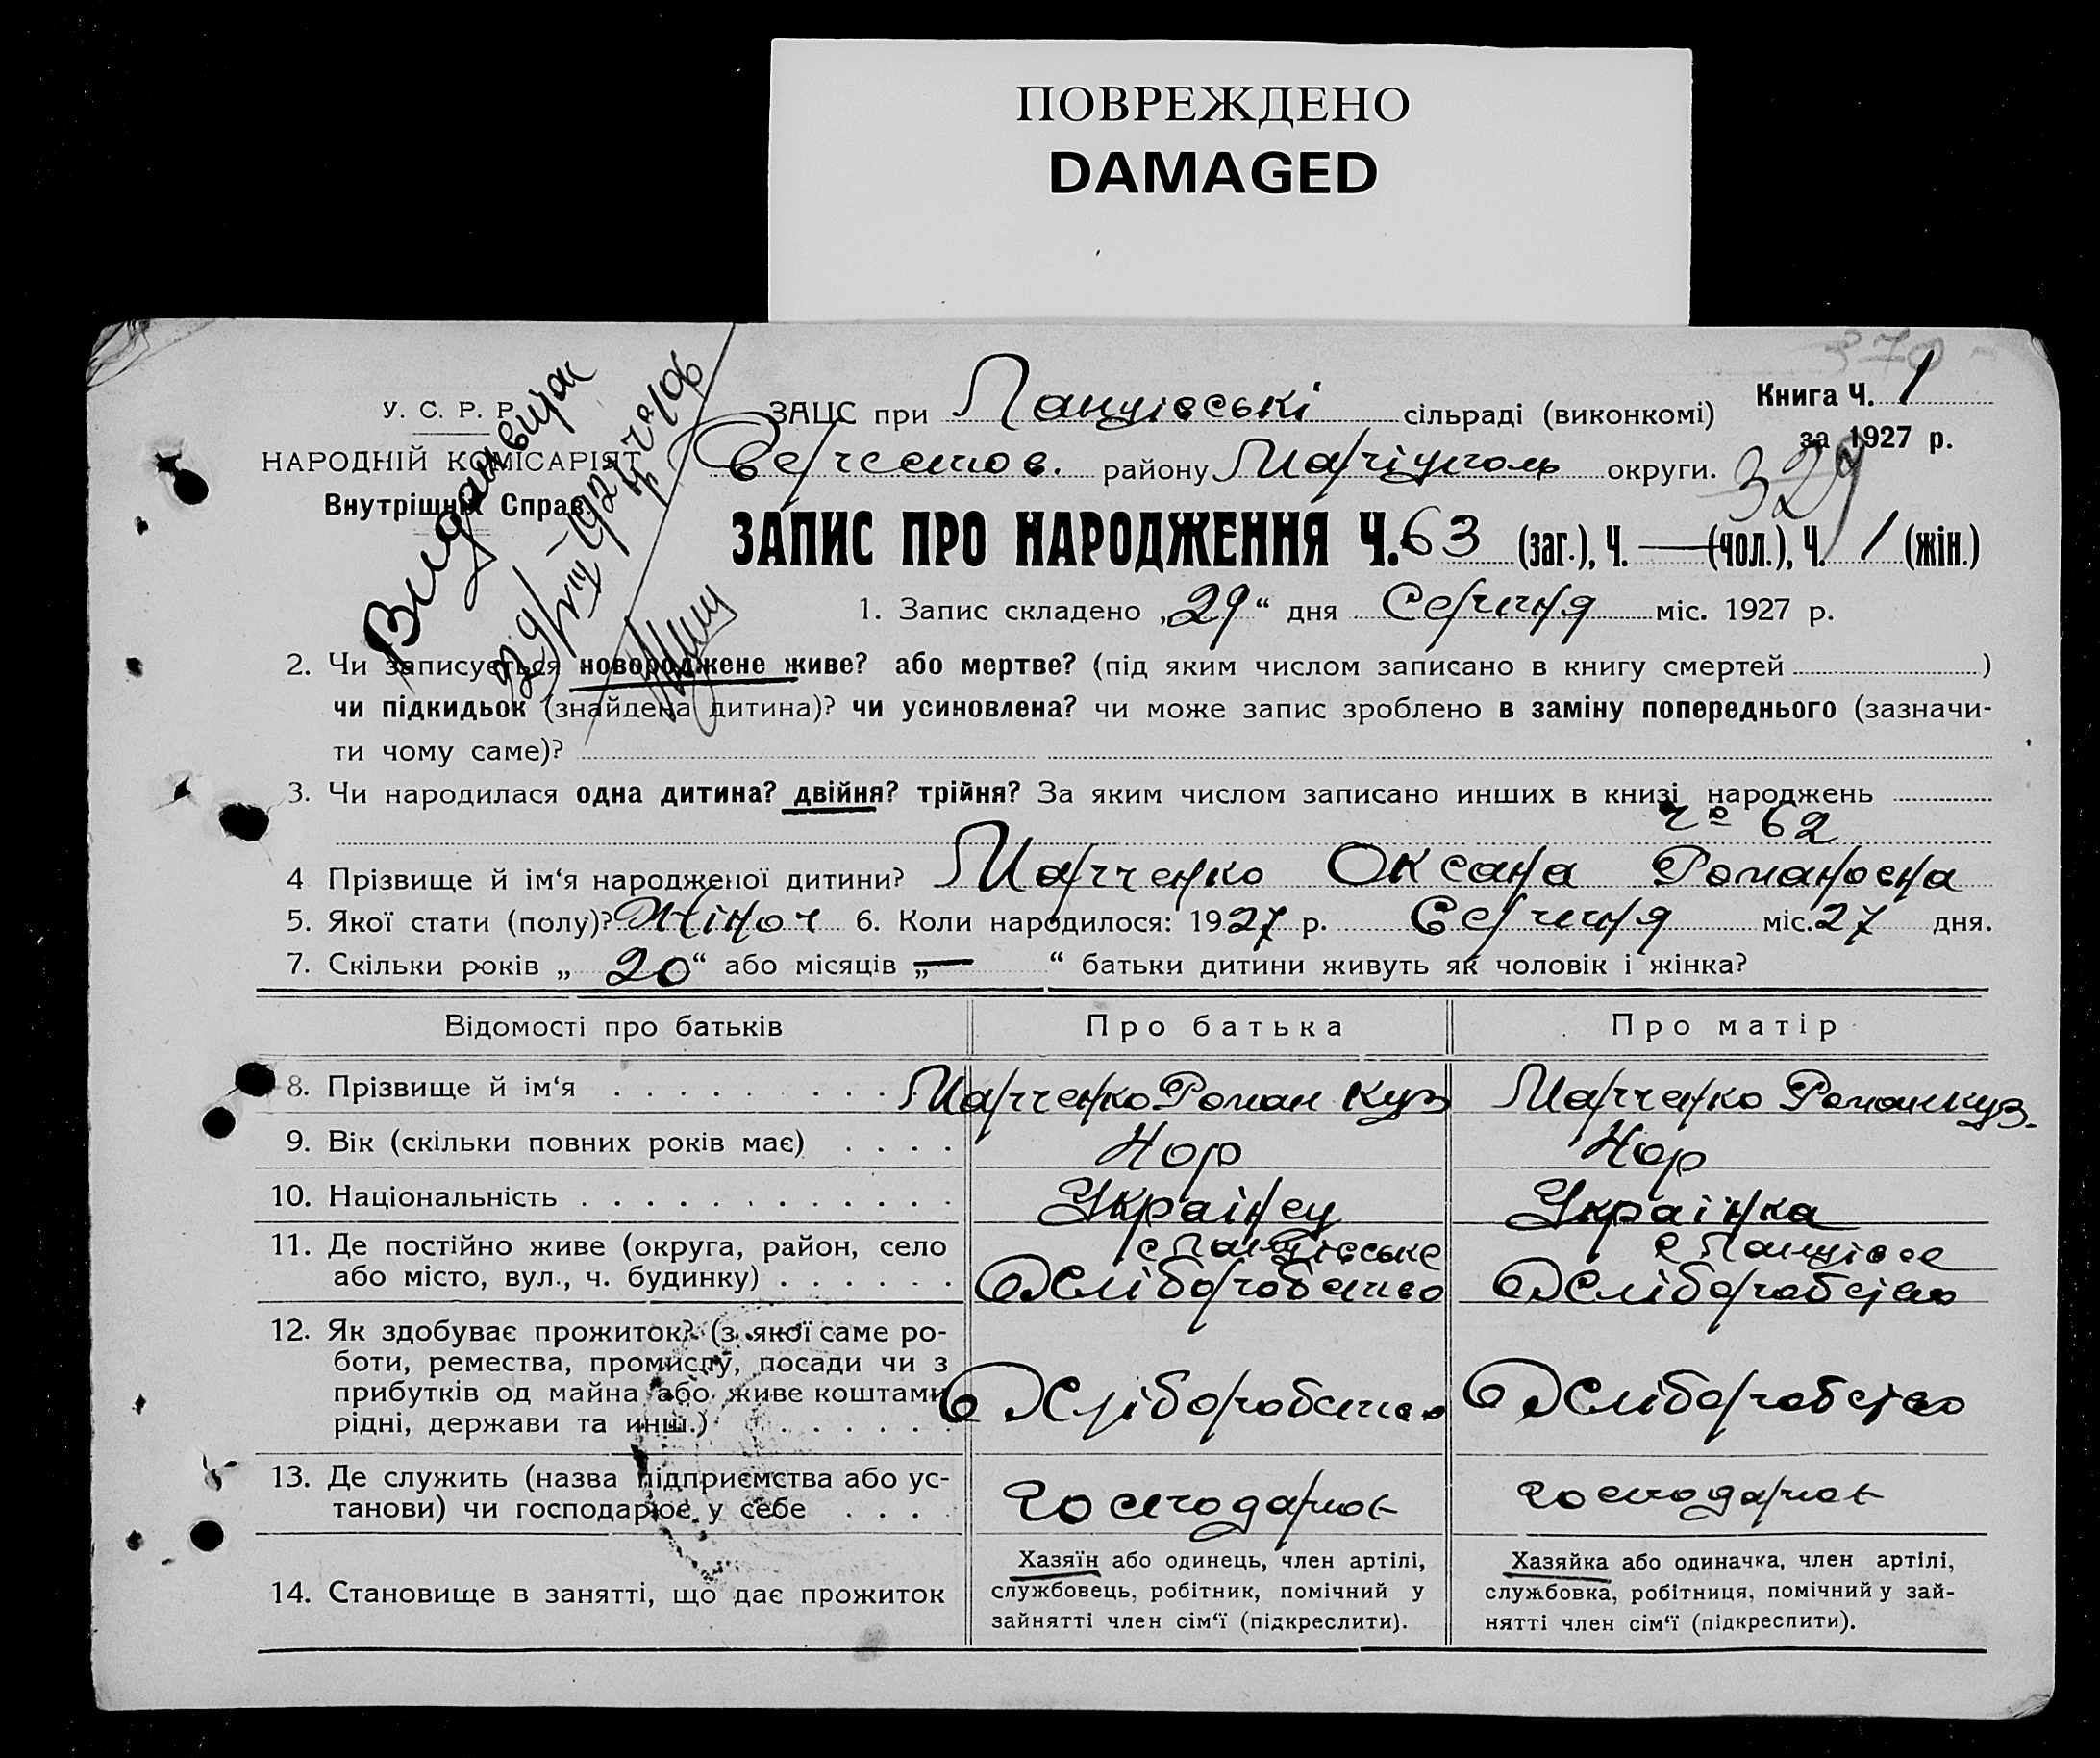 ПОВРЕЖДЕНО
DAMAGED
370
У. С. Р. Р.
НАРОДНІЙ КОМІСАРІЯТ
Внутрішніх Справ.
ЗАЦС при сільраді (виконкомі)
району Маріуполь округи.
Книга Ч. 1
за 1927 р.
329
ЗАПИС ПРО НАРОДЖЕННЯ Ч. 63 (заг.), Ч. — (чол.), Ч. / (жін.)
1. Запис складено „29“ дня Серпня міс. 1927 р.
2. Чи записується новороджене живе? або мертве? (під яким числом записано в книгу смертей )
чи підкидьок (знайдена дитина)? чи усиновлена? чи може запис зроблено в заміну попереднього (зазначи-
ти чому саме)?
3. Чи народилася одна дитина? двійня? трійня? За яким числом записано инших в книзі народжень
ч° 62
4 Прізвище й ім‘я народженої дитини? Марченко Оксана Романовна
5. Якої стати (полу)? Жіноч 6. Коли народилося: 1927 р. Серпня міс. 27 дня.
7. Скільки років „20“ або місяців „—“ батьки дитини живуть як чоловік і жінка?
Відомості про батьків
Про батька
Про матір
8. Прізвище й ім‘я
Марченко Роман Куз
Марченко Роман Куз.
9. Вік (скільки повних років має)
10. Національність
Українец
Українка
11. Де постійно живе (округа, район, село
або місто, вул., ч. будинку)
Хліборобство
Хліборобство
12. Як здобуває прожиток? (з якої саме ро-
боти, ремества, промислу, посади чи з
прибутків од майна або живе коштами
рідні, держави та инш.)
Хліборобство
Хліборобство
13. Де служить (назва підприємства або ус-
танови) чи господарює у себе
господарює
господарює
14. Становище в занятті, що дає прожиток
Хазяїн або одинець, член артілі,
службовець, робітник, помічний у
зайнятті член сім‘ї (підкреслити).
Хазяйка або одиначка, член артілі,
службовка, робітниця, помічний у зай-
нятті член сім‘ї (підкреслити).